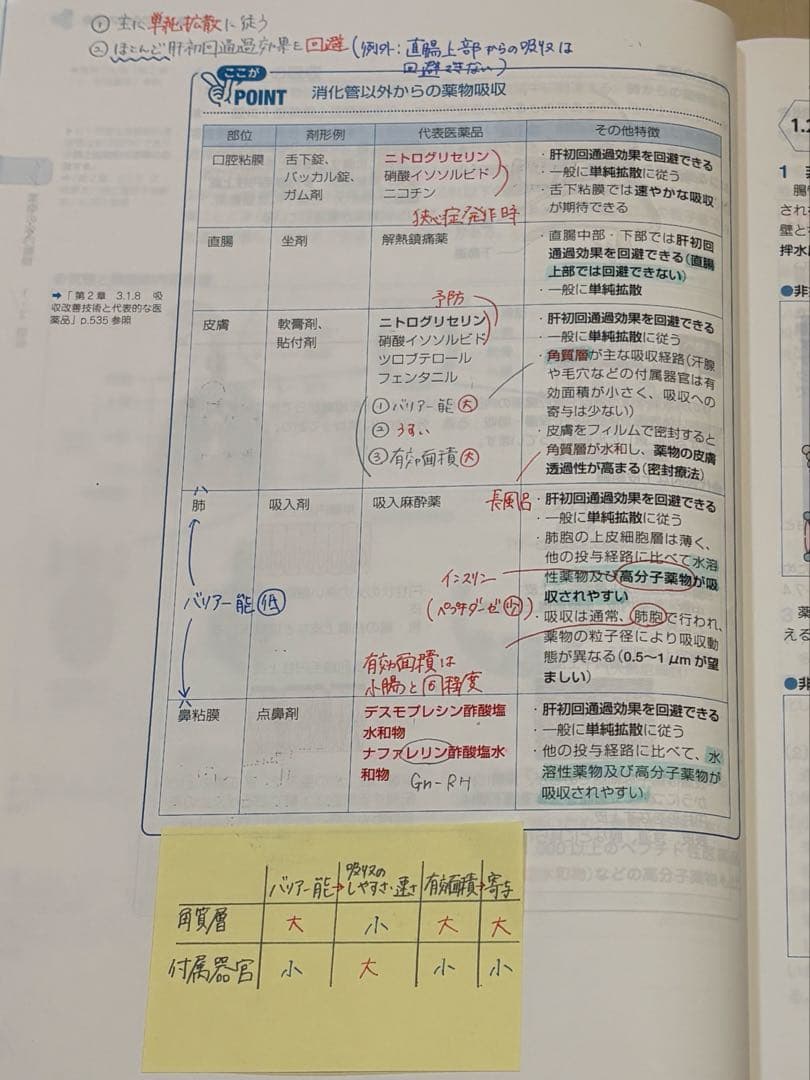 ① 主に単純拡散に従う
② ほとんど肝初回通過効果を回避(例外：直腸上部からの吸収は
回避できない)
ここが
POINT 消化管以外からの薬物吸収
部位 剤形例 代表医薬品 その他特徴
口腔粘膜 舌下錠、
バッカル錠、
ガム剤
ニトログリセリン
硝酸イソソルビド
ニコチン
狭心症発作時
・肝初回通過効果を回避できる
・一般に単純拡散に従う
・舌下粘膜では速やかな吸収
が期待できる
直腸 坐剤 解熱鎮痛薬
・直腸中部・下部では肝初回
通過効果を回避できる(直腸
上部では回避できない)
・一般に単純拡散
➡「第2章 3.1.8 吸
収改善技術と代表的な医
薬品」p.535 参照
予防
皮膚 軟膏剤、
貼付剤
ニトログリセリン
硝酸イソソルビド
ツロブテロール
フェンタニル
① バリアー能 大
② うすい
③ 有効面積 大
・肝初回通過効果を回避できる
・一般に単純拡散に従う
・角質層が主な吸収経路(汗腺
や毛穴などの付属器官は有
効面積が小さく、吸収への
寄与は少ない)
・皮膚をフィルムで密封すると
角質層が水和し、薬物の皮膚
透過性が高まる(密封療法)
長風呂
肺 吸入剤 吸入麻酔薬
バリアー能 低
インスリン
(ペプチダーゼ 少)
有効面積は
小腸と同程度
・肝初回通過効果を回避できる
・一般に単純拡散に従う
・肺胞の上皮細胞層は薄く、
他の投与経路に比べて水溶
性薬物及び高分子薬物が吸
収されやすい
・吸収は通常、肺胞で行われ、
薬物の粒子径により吸収動
態が異なる(0.5〜1μmが望
ましい)
鼻粘膜 点鼻剤
デスモプレシン酢酸塩
水和物
ナファレリン酢酸塩水
和物
Gn-RH
・肝初回通過効果を回避できる
・一般に単純拡散に従う
・他の投与経路に比べて、水
溶性薬物及び高分子薬物が
吸収されやすい
バリアー能→吸収のしやすさ・速さ 有効面積→寄与
角質層 大 小 大 大
付属器官 小 大 小 小
1.2
1